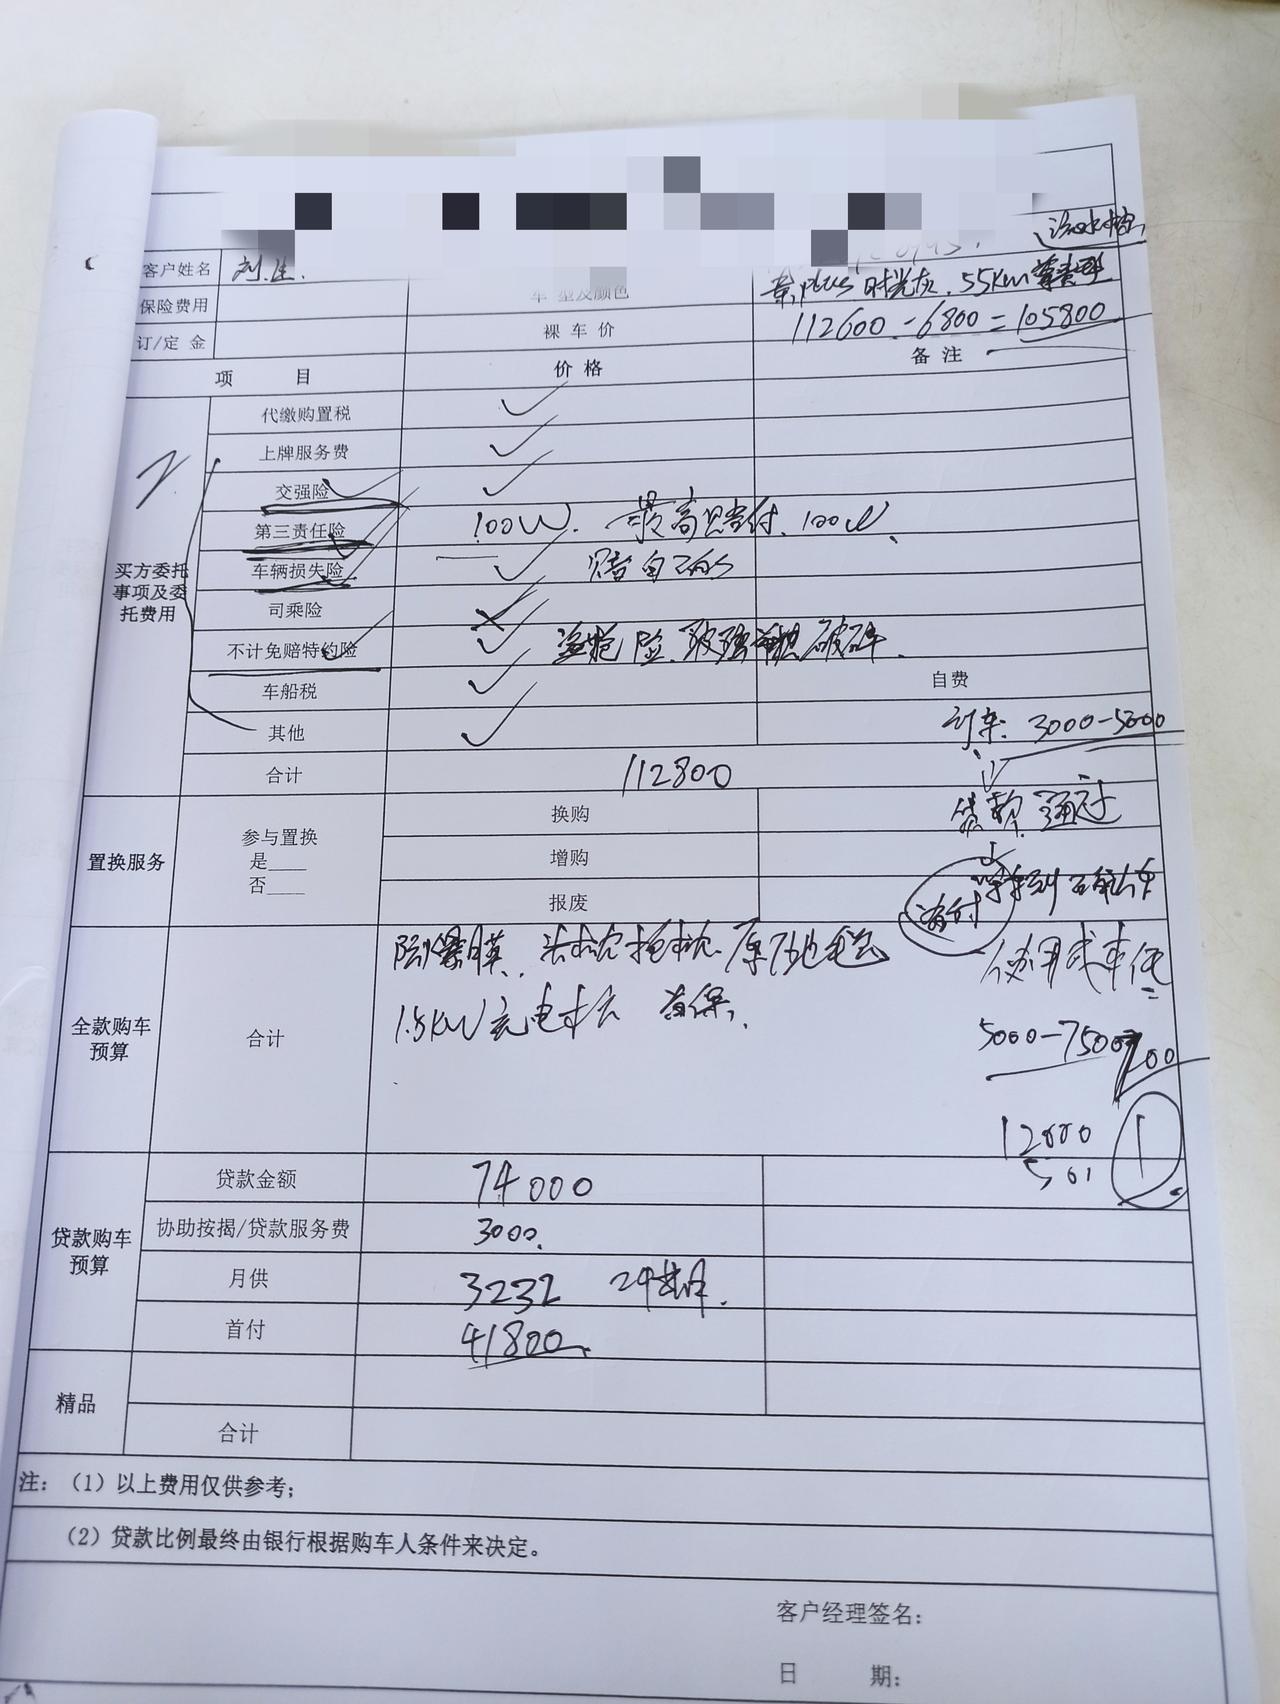 客户姓名 刘生.
保险费用 车型及颜色 秦plus 时光灰. 55Km 尊贵型
订/定金 裸车价 112600-6800=105800
项目 价格 备注
代缴购置税
上牌服务费
交强险
第三责任险 100W. 最高赔付. 100W.
车辆损失险 赔自己的
买方委托事项及委托费用
司乘险
不计免赔特约险 盗抢险. 玻璃单独破碎.
车船税 自费
其他 订车: 3000-5000
合计 112800
贷款通过
置换服务
参与置换
是____
否____
换购
增购
报废
首付
防爆膜、头枕抱枕 原厂地毯
1.5KW充电 首保.
5000-7500
全款购车预算
合计
12000
贷款购车预算
贷款金额 74000
协助按揭/贷款服务费 3000.
月供 3232 24
首付 41800
精品
合计
注:(1)以上费用仅供参考;
(2)贷款比例最终由银行根据购车人条件来决定。
客户经理签名:
日 期: